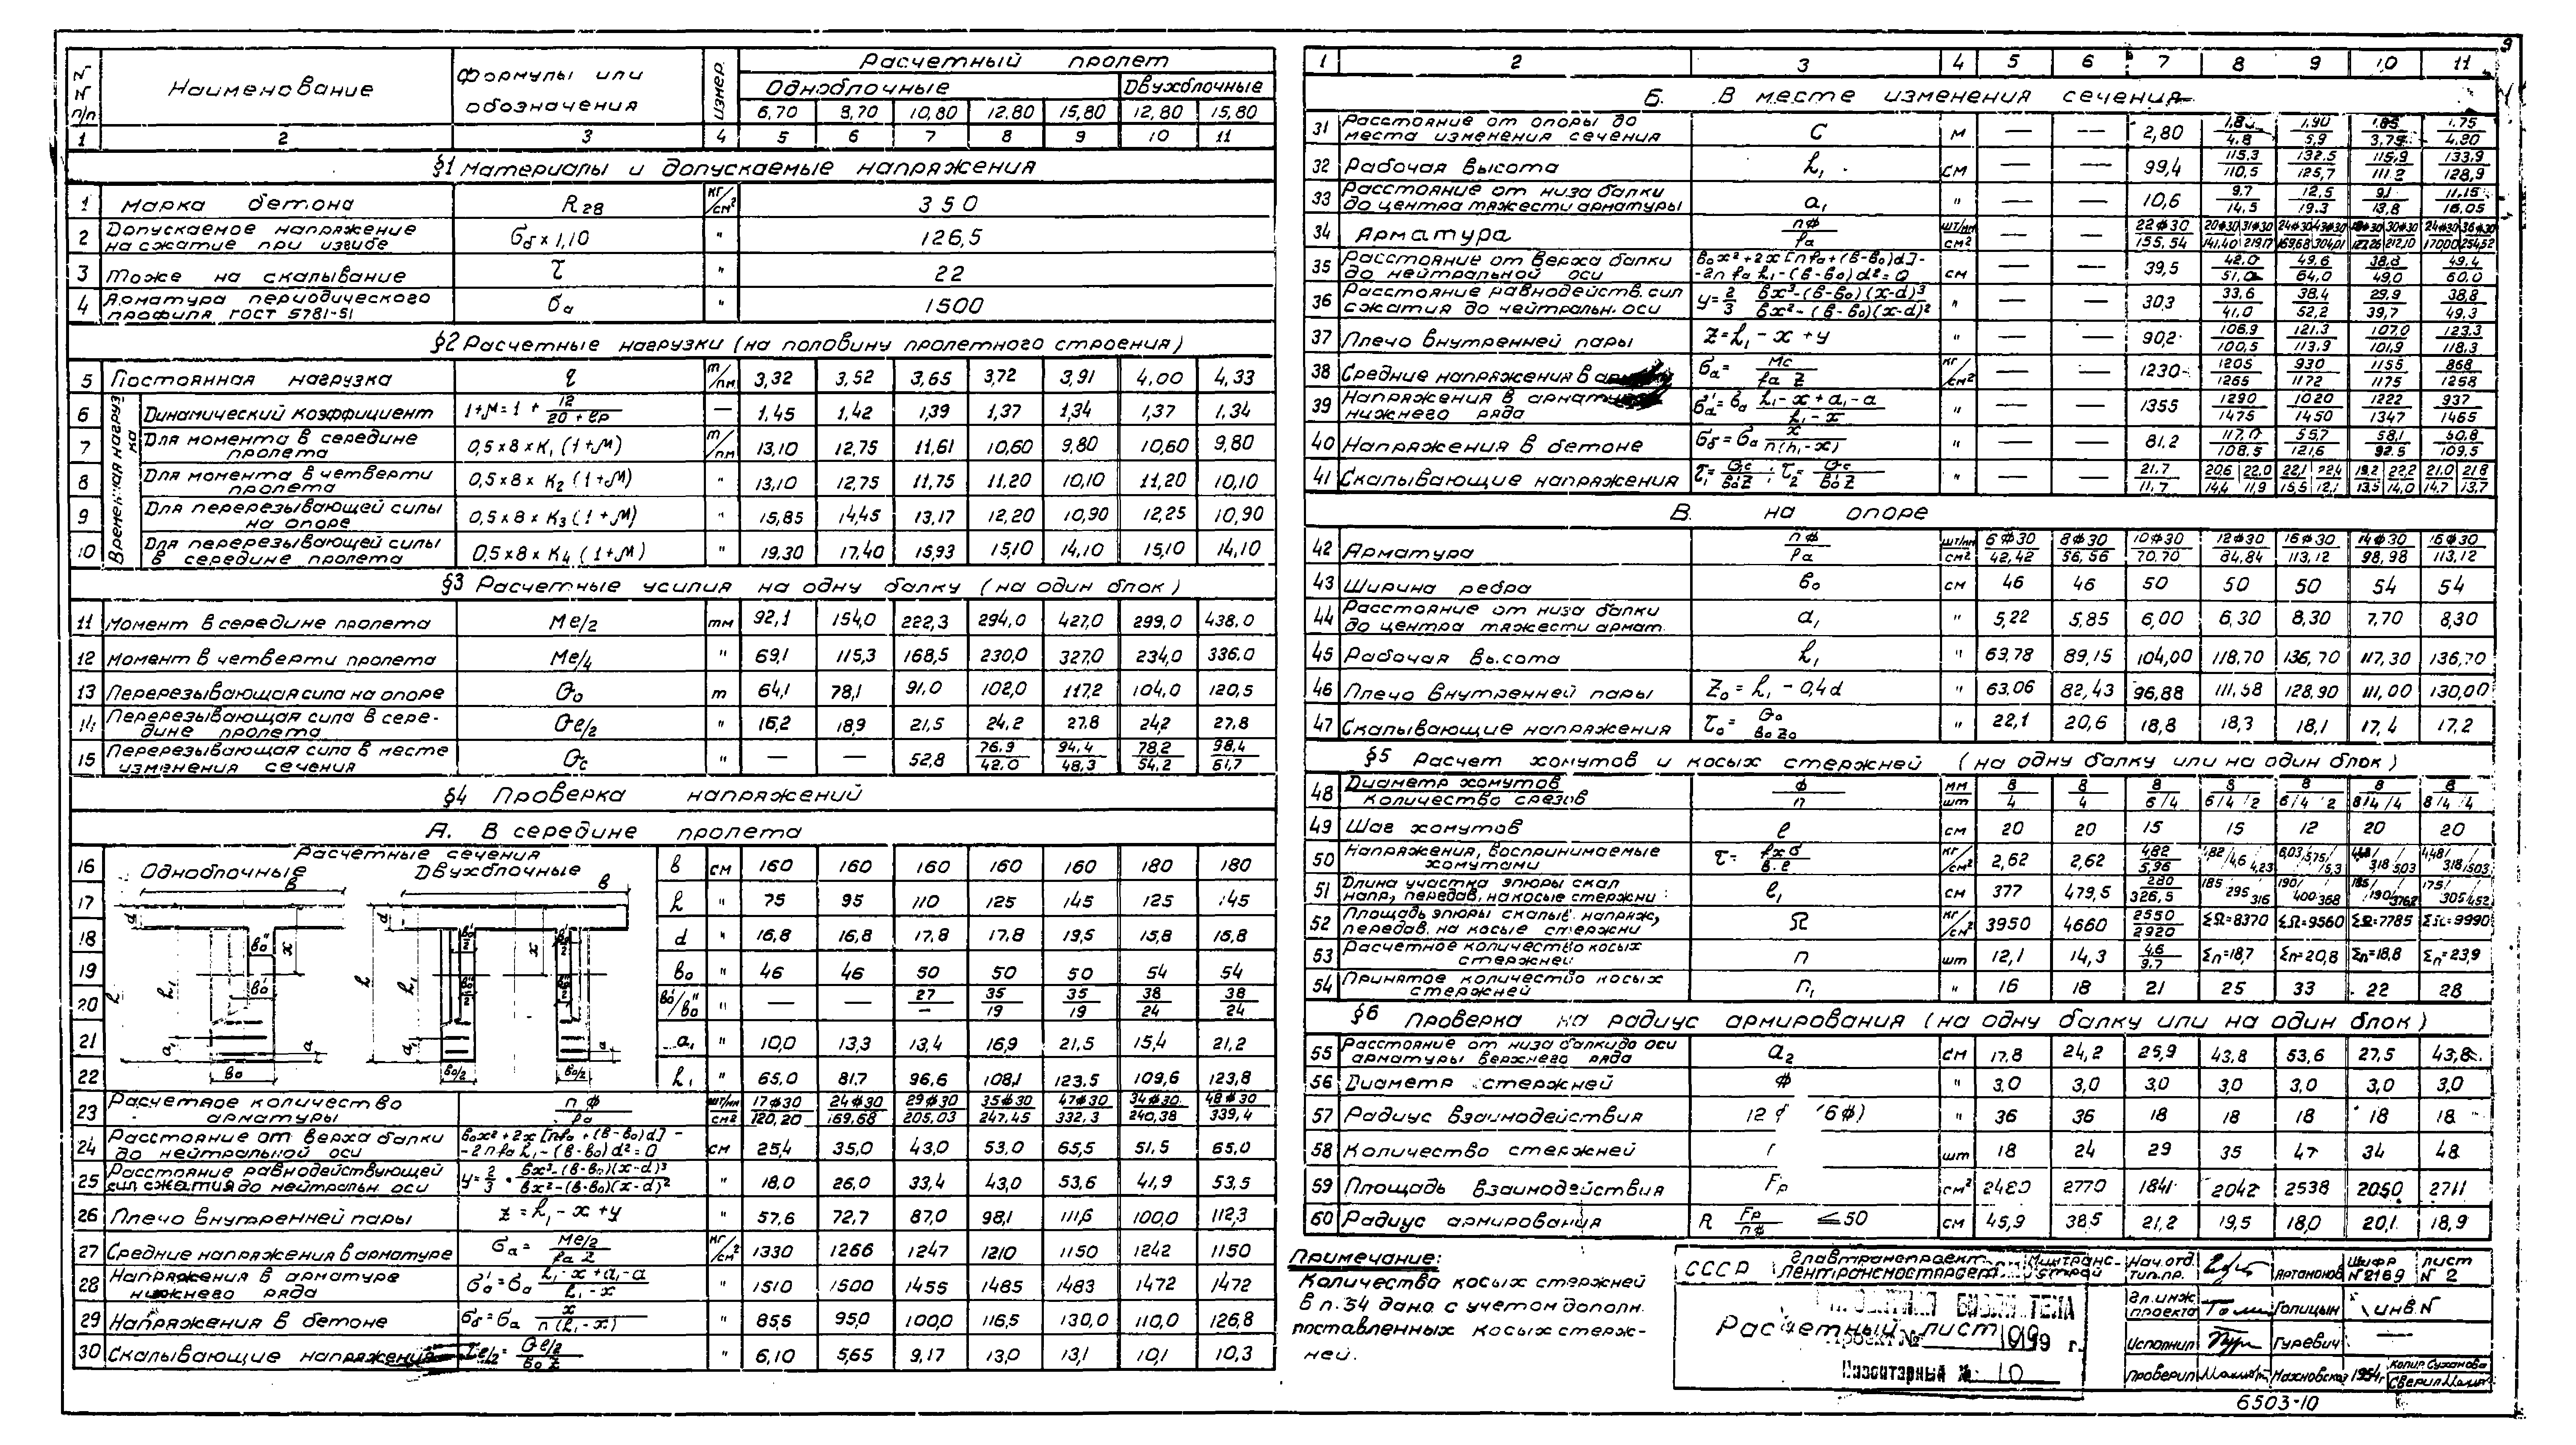 9
N N п/п | Наименование | Формулы или обозначения | измер. | Расчетный пролет
Одноблочные | Двухблочные
6,70 | 8,70 | 10,80 | 12,80 | 15,80 | 12,80 | 15,80
1 | 2 | 3 | 4 | 5 | 6 | 7 | 8 | 9 | 10 | 11
§1 Материалы и допускаемые напряжения
1 | Марка бетона | R28 | кг/см² | 350
2 | Допускаемое напряжение на сжатие при изгибе | σδ x 1,10 | " | 126,5
3 | Тоже на скалывание | τ | " | 22
4 | Арматура периодического профиля ГОСТ 5781-51 | σа | " | 1500
§2 Расчетные нагрузки (на половину пролетного строения)
5 | Постоянная нагрузка | q | т/пм | 3,32 | 3,52 | 3,65 | 3,72 | 3,91 | 4,00 | 4,33
Временная нагрузка
6 | Динамический коэффициент | 1+м = 1 + 12/(20+ер) | — | 1,45 | 1,42 | 1,39 | 1,37 | 1,34 | 1,37 | 1,34
7 | Для момента в середине пролета | 0,5 x 8 x K₁ (1+м) | т/пм | 13,10 | 12,75 | 11,61 | 10,60 | 9,80 | 10,60 | 9,80
8 | Для момента в четверти пролета | 0,5 x 8 x K₂ (1+м) | " | 13,10 | 12,75 | 11,75 | 11,20 | 10,10 | 11,20 | 10,10
9 | Для перерезывающей силы на опоре | 0,5 x 8 x K₃ (1+м) | " | 15,85 | 14,45 | 13,17 | 12,20 | 10,90 | 12,25 | 10,90
10 | Для перерезывающей силы в середине пролета | 0,5 x 8 x K₄ (1+м) | " | 19,30 | 17,40 | 15,93 | 15,10 | 14,10 | 15,10 | 14,10
§3 Расчетные усилия на одну балку (на один блок)
11 | Момент в середине пролета | Me/2 | тм | 92,1 | 154,0 | 222,3 | 294,0 | 427,0 | 299,0 | 438,0
12 | Момент в четверти пролета | Me/4 | " | 69,1 | 115,3 | 168,5 | 230,0 | 327,0 | 234,0 | 336,0
13 | Перерезывающая сила на опоре | Qо | т | 64,1 | 78,1 | 91,0 | 102,0 | 117,2 | 104,0 | 120,5
14 | Перерезывающая сила в середине пролета | Qe/2 | " | 16,2 | 18,9 | 21,5 | 24,2 | 27,8 | 24,2 | 27,8
15 | Перерезывающая сила в месте изменения сечения | Qс | " | — | — | 52,8 | 76,9/42,0 | 94,4/48,3 | 78,2/54,2 | 98,4/61,7
§4 Проверка напряжений
А. В середине пролета
Расчетные сечения
Одноблочные Двухблочные
16 | в | см | 160 | 160 | 160 | 160 | 160 | 180 | 180
17 | h | " | 75 | 95 | 110 | 125 | 145 | 125 | 145
18 | d | " | 16,8 | 16,8 | 17,8 | 17,8 | 19,5 | 15,8 | 16,8
19 | во | " | 46 | 46 | 50 | 50 | 50 | 54 | 54
20 | во'/во" | " | — | — | 27/— | 35/19 | 35/19 | 38/24 | 38/24
21 | а₁ | " | 10,0 | 13,3 | 13,4 | 16,9 | 21,5 | 15,4 | 21,2
22 | h₁ | " | 65,0 | 81,7 | 96,6 | 108,1 | 123,5 | 109,6 | 123,8
23 | Расчетное количество арматуры | nф/fа | шт/мм / см² | 17ф30/120,20 | 24ф30/169,68 | 29ф30/205,03 | 35ф30/247,45 | 47ф30/332,3 | 34ф30/240,38 | 48ф30/339,4
24 | Расстояние от верха балки до нейтральной оси | воx²+2x[nfа+(в-во)d]- -2nfа h₁-(в-во)d²=0 | см | 25,4 | 35,0 | 43,0 | 53,0 | 65,5 | 51,5 | 65,0
25 | Расстояние равнодействующей сил сжатия до нейтральн. оси | y=2/3 · (вx³-(в-во)(x-d)³)/(вx²-(в-во)(x-d)²) | " | 18,0 | 26,0 | 33,4 | 43,0 | 53,6 | 41,9 | 53,5
26 | Плечо внутренней пары | z = h₁ - x + y | " | 57,6 | 72,7 | 87,0 | 98,1 | 111,6 | 100,0 | 112,3
27 | Средние напряжения в арматуре | σа = (Me/2)/(fа z) | кг/см² | 1330 | 1266 | 1247 | 1210 | 1150 | 1242 | 1150
28 | Напряжения в арматуре нижнего ряда | σа' = σа (h₁-x+а₁-а)/(h₁-x) | " | 1510 | 1500 | 1455 | 1485 | 1483 | 1472 | 1472
29 | Напряжения в бетоне | σδ = σа x/(n(h₁-x)) | " | 85,5 | 95,0 | 100,0 | 116,5 | 130,0 | 110,0 | 126,8
30 | Скалывающие напряжения | τe/2 = (Qe/2)/(во z) | " | 6,10 | 5,65 | 9,17 | 13,0 | 13,1 | 10,1 | 10,3
1 | 2 | 3 | 4 | 5 | 6 | 7 | 8 | 9 | 10 | 11
Б. В месте изменения сечения
31 | Расстояние от опоры до места изменения сечения | C | м | — | — | 2,80 | 4,8 | 1,90/5,9 | 1,85/3,75 | 1,75/4,80
32 | Рабочая высота | h₁ | см | — | — | 99,4 | 115,3/110,5 | 132,5/125,7 | 115,9/111,2 | 133,9/128,9
33 | Расстояние от низа балки до центра тяжести арматуры | а₁ | " | — | — | 10,6 | 9,7/14,5 | 12,5/19,3 | 9,1/13,8 | 11,15/16,05
34 | Арматура | nф/fа | шт/мм / см² | — | — | 22ф30/155,54 | 20ф30 31ф30/141,40 219,17 | 24ф30 43ф30/169,68 304,01 | 30ф30/212,10 | 24ф30 36ф30/170,00 254,52
35 | Расстояние от верха балки до нейтральной оси | воx²+2x[nfа+(в-во)d]- -2nfа h₁-(в-во)d²=0 | см | — | — | 39,5 | 42,0/51,0 | 49,6/64,0 | 38,8/49,0 | 49,4/60,0
36 | Расстояние равнодейств. сил сжатия до нейтральн. оси | y=2/3 (вx³-(в-во)(x-d)³)/(вx²-(в-во)(x-d)²) | " | — | — | 303 | 33,6/41,0 | 38,4/52,2 | 29,9/39,7 | 38,8/49,3
37 | Плечо внутренней пары | z = h₁ - x + y | " | — | — | 90,2 | 106,9/100,5 | 121,3/113,9 | 107,0/101,9 | 123,3/118,3
38 | Средние напряжения в | σа = Mс/(fа z) | кг/см² | — | — | 1230 | 1205/1265 | 930/1172 | 1155/1175 | 868/1258
39 | Напряжения в арматуре нижнего ряда | σа' = σа (h₁-x+а₁-а)/(h₁-x) | " | — | — | 1355 | 1290/1475 | 1020/1450 | 1222/1347 | 937/1465
40 | Напряжения в бетоне | σδ = σа x/(n(h₁-x)) | " | — | — | 81,2 | 117,0/108,5 | 55,7/121,6 | 58,1/92,5 | 50,8/109,5
41 | Скалывающие напряжения | τ₁ = Qс/(во' z); τ₂ = Qс/(во z) | " | — | — | 21,7/11,7 | 20,6 22,0/14,4 11,9 | 22,1 22,4/15,5 12,1 | 19,2 22,2/13,5 14,0 | 21,0 21,8/14,7 13,7
В. на опоре
42 | Арматура | nф/fа | шт/мм / см² | 6ф30/42,42 | 8ф30/56,56 | 10ф30/70,70 | 12ф30/84,84 | 16ф30/113,12 | 14ф30/98,98 | 16ф30/113,12
43 | Ширина ребра | во | см | 46 | 46 | 50 | 50 | 50 | 54 | 54
44 | Расстояние от низа балки до центра тяжести армат. | а₁ | " | 5,22 | 5,85 | 6,00 | 6,30 | 8,30 | 7,70 | 8,30
45 | Рабочая высота | h₁ | " | 69,78 | 89,15 | 104,00 | 118,70 | 136,70 | 117,30 | 136,70
46 | Плечо внутренней пары | Zо = h₁ - 0,4d | " | 63,06 | 82,43 | 96,88 | 111,58 | 128,90 | 111,00 | 130,00
47 | Скалывающие напряжения | τо = Qо/(во zо) | " | 22,1 | 20,6 | 18,8 | 18,3 | 18,1 | 17,4 | 17,2
§5 Расчет хомутов и косых стержней (на одну балку или на один блок)
48 | Диаметр хомутов / Количество срезов | ф/n | мм/шт | 8/4 | 8/4 | 8 6/4 | 8 6/4/2 | 8 6/4/2 | 8 8/4/4 | 8 8/4/4
49 | Шаг хомутов | е | см | 20 | 20 | 15 | 15 | 12 | 20 | 20
50 | Напряжения, воспринимаемые хомутами | τ = fхσ/(в·е) | кг/см² | 2,62 | 2,62 | 4,82/5,96 | 4,82/4,6/4,23 | 6,03/5,75/5,3 | 3,18/5,03 | 4,48/3,18/5,03
51 | Длина участка эпюры скал напр, передав. на косые стержни | е₁ | см | 377 | 479,5 | 280/326,5 | 185/295/316 | 190/400/368 | 185/190/376,2 | 175/305/452
52 | Площадь эпюры скалыв. напряж, передав. на косые стержни | Ω | кг/см² | 3950 | 4660 | 2550/2920 | ΣΩ=8370 | ΣΩ=9560 | ΣΩ=7785 | ΣΩ=9990
53 | Расчетное количество косых стержней | n | шт | 12,1 | 14,3 | 4,6/9,7 | Σn=18,7 | Σn=20,8 | Σn=18,8 | Σn=23,9
54 | Принятое количество косых стержней | n₁ | " | 16 | 18 | 21 | 25 | 33 | 22 | 28
§6 Проверка на радиус армирования (на одну балку или на один блок)
55 | Расстояние от низа балки до оси арматуры верхнего ряда | а₂ | см | 17,8 | 24,2 | 25,9 | 43,8 | 53,6 | 27,5 | 43,8
56 | Диаметр стержней | ф | " | 3,0 | 3,0 | 3,0 | 3,0 | 3,0 | 3,0 | 3,0
57 | Радиус взаимодействия | 12 6ф) | " | 36 | 36 | 18 | 18 | 18 | 18 | 18
58 | Количество стержней | шт | 18 | 24 | 29 | 35 | 47 | 34 | 48
59 | Площадь взаимодействия | Fр | см² | 2480 | 2770 | 1841 | 2042 | 2538 | 2050 | 2711
60 | Радиус армирования | R Fр/nф ≤ 50 | см | 45,9 | 38,5 | 21,2 | 19,5 | 18,0 | 20,1 | 18,9
Примечание:
Количество косых стержней
в п. 54 дано с учетом дополн.
поставленных косых стерж-
ней.
СССР | Главтранспроект Лентрансмостпроект Минтрансстрой
Расчетный лист
Инвентарный № 10
Нач. отд. тип. пр. | Артамонов | Шифр N 2169 | Лист N 2
Гл. инж проекта | Голицын | инв. N
Исполнил | Гуревич | —
Проверил | Махновская | 1954г | Копир. Суханова
Сверил
6503-10